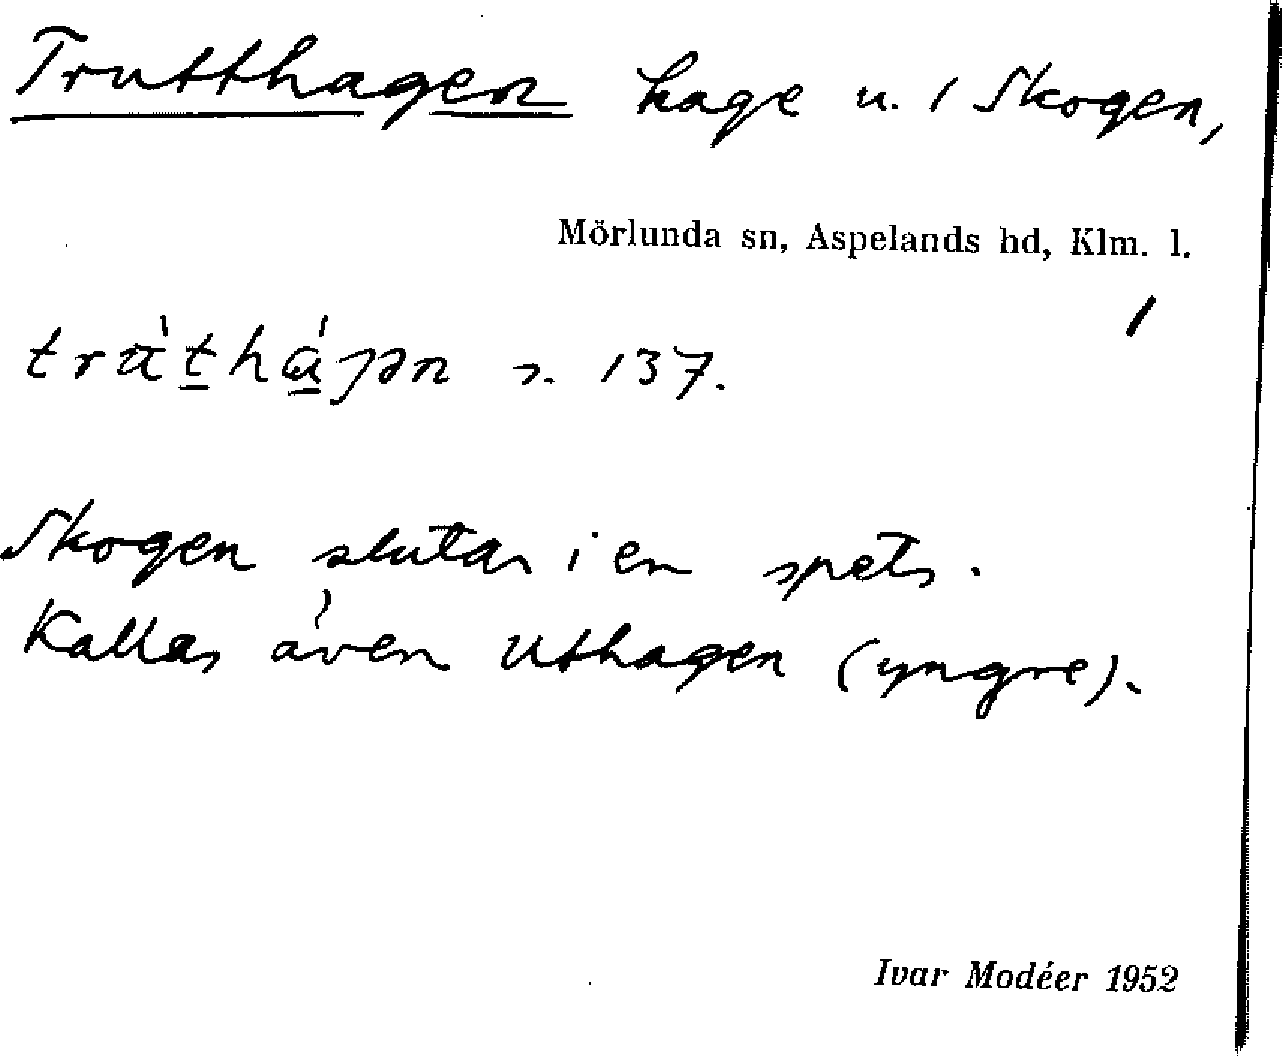 Trutthagen hage u. 1 Skogen,
Mörlunda sn, Aspelands hd, Klm. l.
s. 137.
Skogen slutar i en spets.
Kallas även Uthagen (yngre).
Ivar Modéer 1952